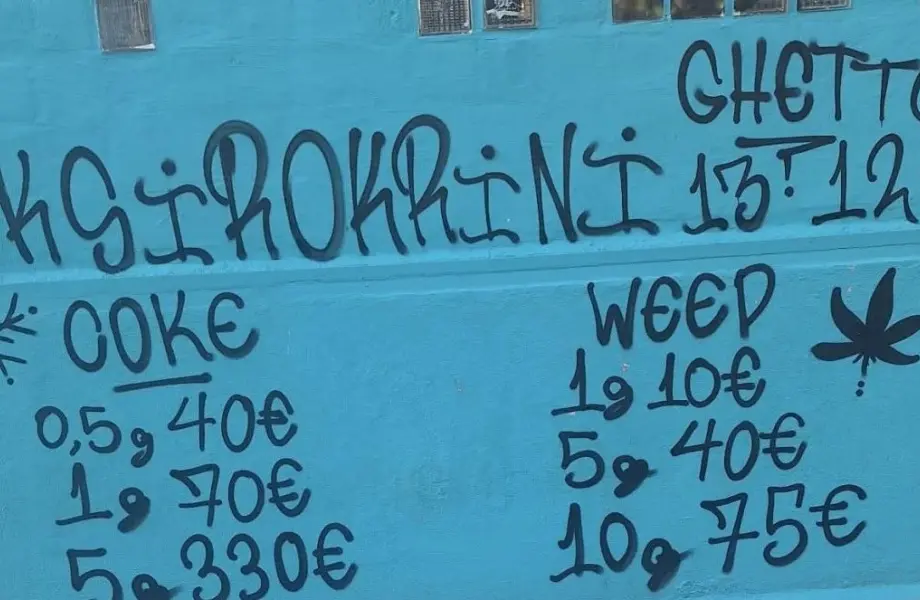 GHETTO
KSiROKRiNi 13? 12
COKE
0,5g 40€
1g 70€
5g 330€
WEED
1g 10€
5g 40€
10g 75€